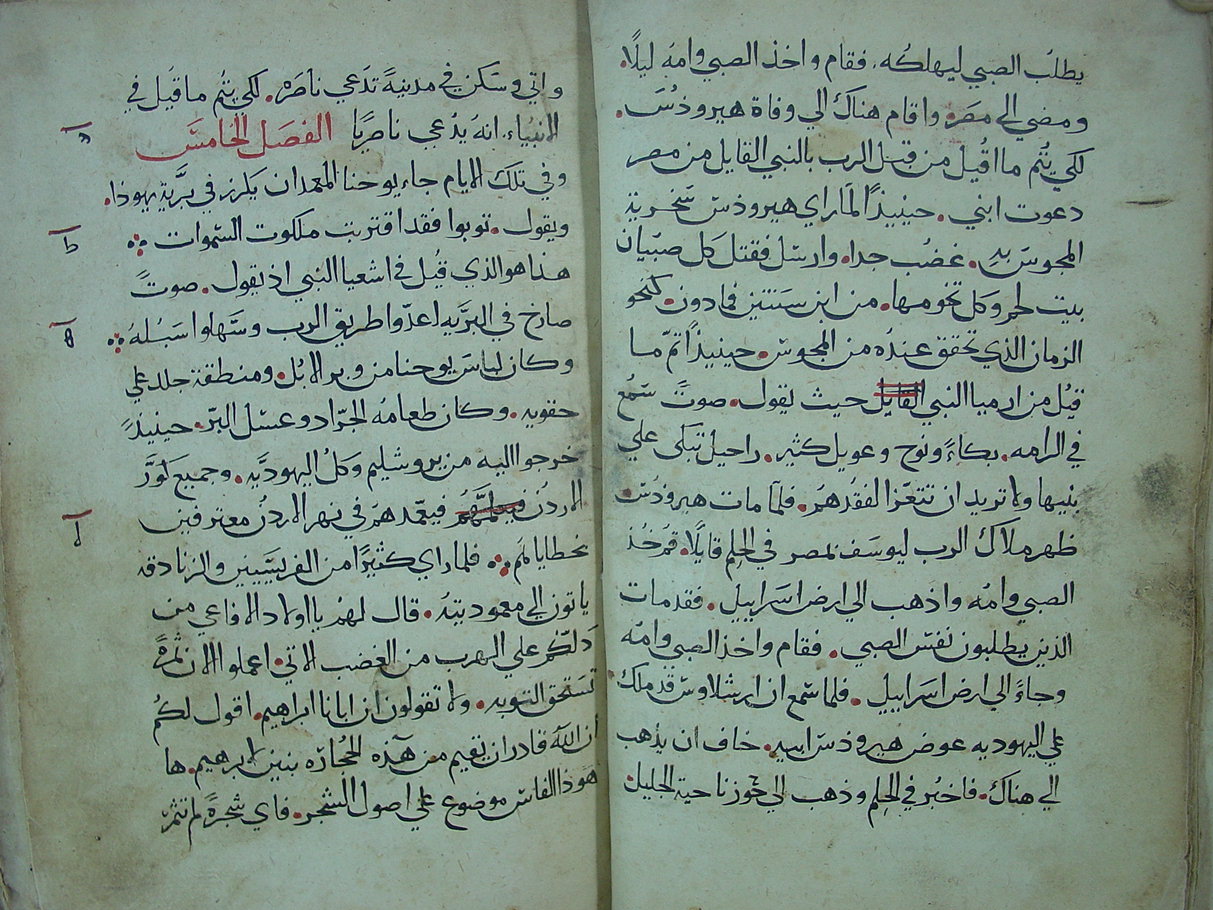 يطلب الصبي ليهلكه. فقام واخذ الصبي وامه ليلًا.
ومضي الي مصر. واقام هناك الي وفاة هيرودس.
لكي يتُم ما اقُيل من قبل الرب بالنبي القايل من مصر
دعوت ابني. حينيذًا لما راي هيرودس سخرية
المجوس به. غضب جدا. وارسل فقتل كل صبيان
بيت لحم وكل تخومها. من ابن سنتين فما دون. كنحو
الزمان الذي تحقق عنده من المجوس. حينيذًا تم ما
قيُل من ارميا النبي القايل حيث يقول. صوتً سمُع
في الرامه. بكاءً ونوح وعويل كثير. راحيل تبكي علي
بنيها ولا تريد ان تتعزا لفقدهم. فلما مات هيرودس
ظهر ملاك الرب ليوسف بمصر في الحلم قايلًا. قم خذ
الصبي وامه واذهب الي ارض اسراييل. فقد مات
الذين يطلبون نفس الصبي. فقام واخذ الصبي وامه
وجاءَ الي ارض اسراييل. فلما سمع ان ارشلاوس قد ملك
علي اليهوديه عوض هيرودس ابيه. خاف ان يذهب
الي هناك. فاخبُر في الحلم وذهب الي حوز ناحية الجليل
واتي وسكن في مدينةً تدعي ناصره. لكي يتُم ما قيُل في
الانبياء. انه يدُعي ناصريًا الفصل الخامس
وفي تلك الايام جاء يوحنا المعمدان يكرز في برَّية يهوذا.
ويقول. توبوا فقد اقتربت ملكوت السموات
هذا هو الذي قيُل في اشعيا النبي اذ يقول. صوتً
صارخ في البرَّيه اعدّوا طريق الرب وسَهلوا سُبُله
وكان لباس يوحنا من وبر الابُل. ومنطقة جلد علي
حقويه. وكان طعامهُ الجرّاد وعسل البرّ. حينيذً
خرجوا اليه من يروشليم وكل اليهوديَّه. وجميع كورَّ
الاردن فيعمدهم في نهر الاردنُ معترفين
بخطاياهم فلما راي كثيرًا من الفريسيين والزنادقه
ياتون الي معموديته. قال لهم يا اولاد الافاعي من
دَلَّكم علي الهرب من الغضب الاتي. اعملوا الان ثمرةً
تستحق التوبه. ولا تقولون ان ابانا ابراهيم. اقول لكمُ
ان الله قادر ان يقيم من هذه الحجُاره بنين لابرهيم. ها
هوذا الفاس موضوع علي اصول الشجر. فاي شجرةً لم تثمر